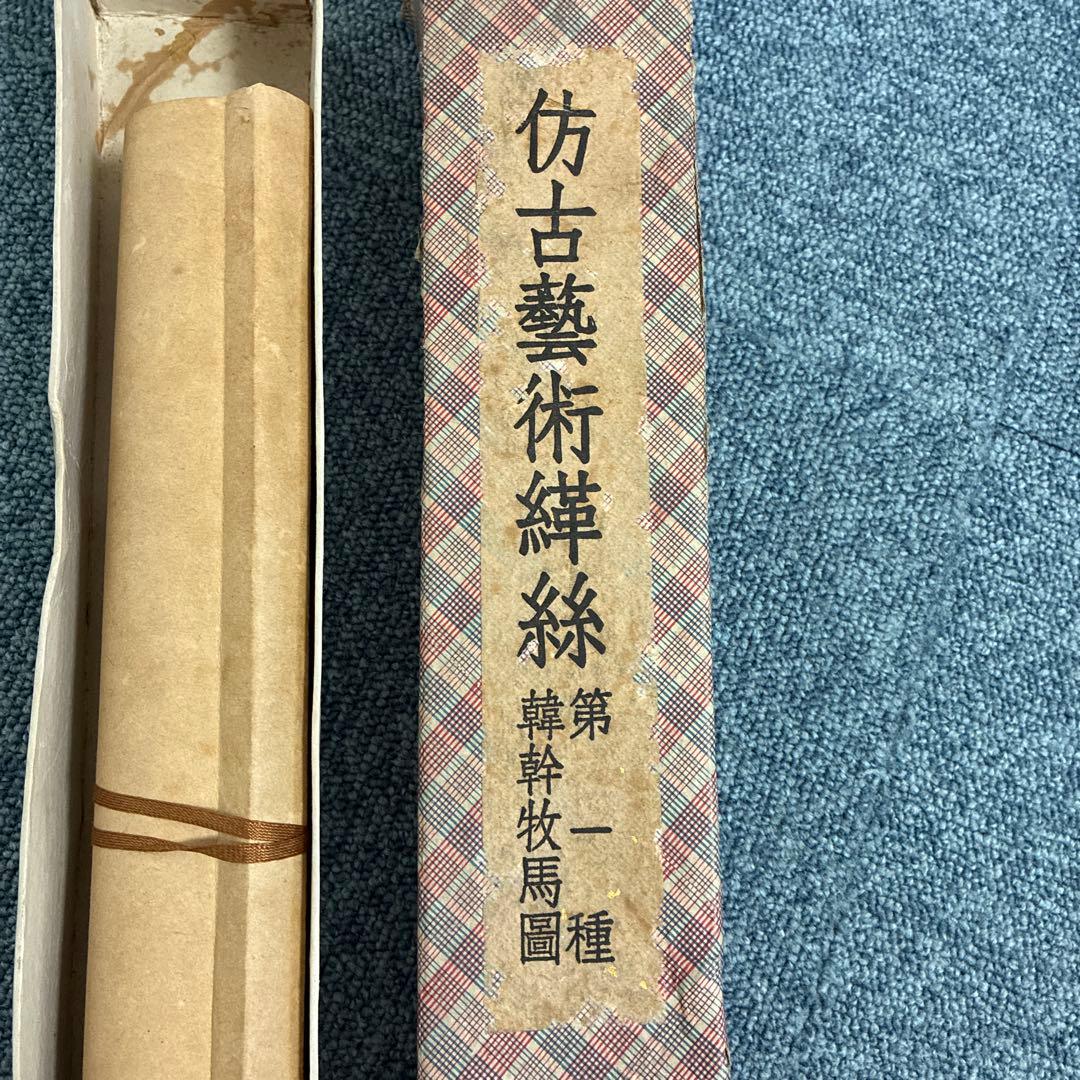 仿古藝術緙絲
第一種
韓幹牧馬圖